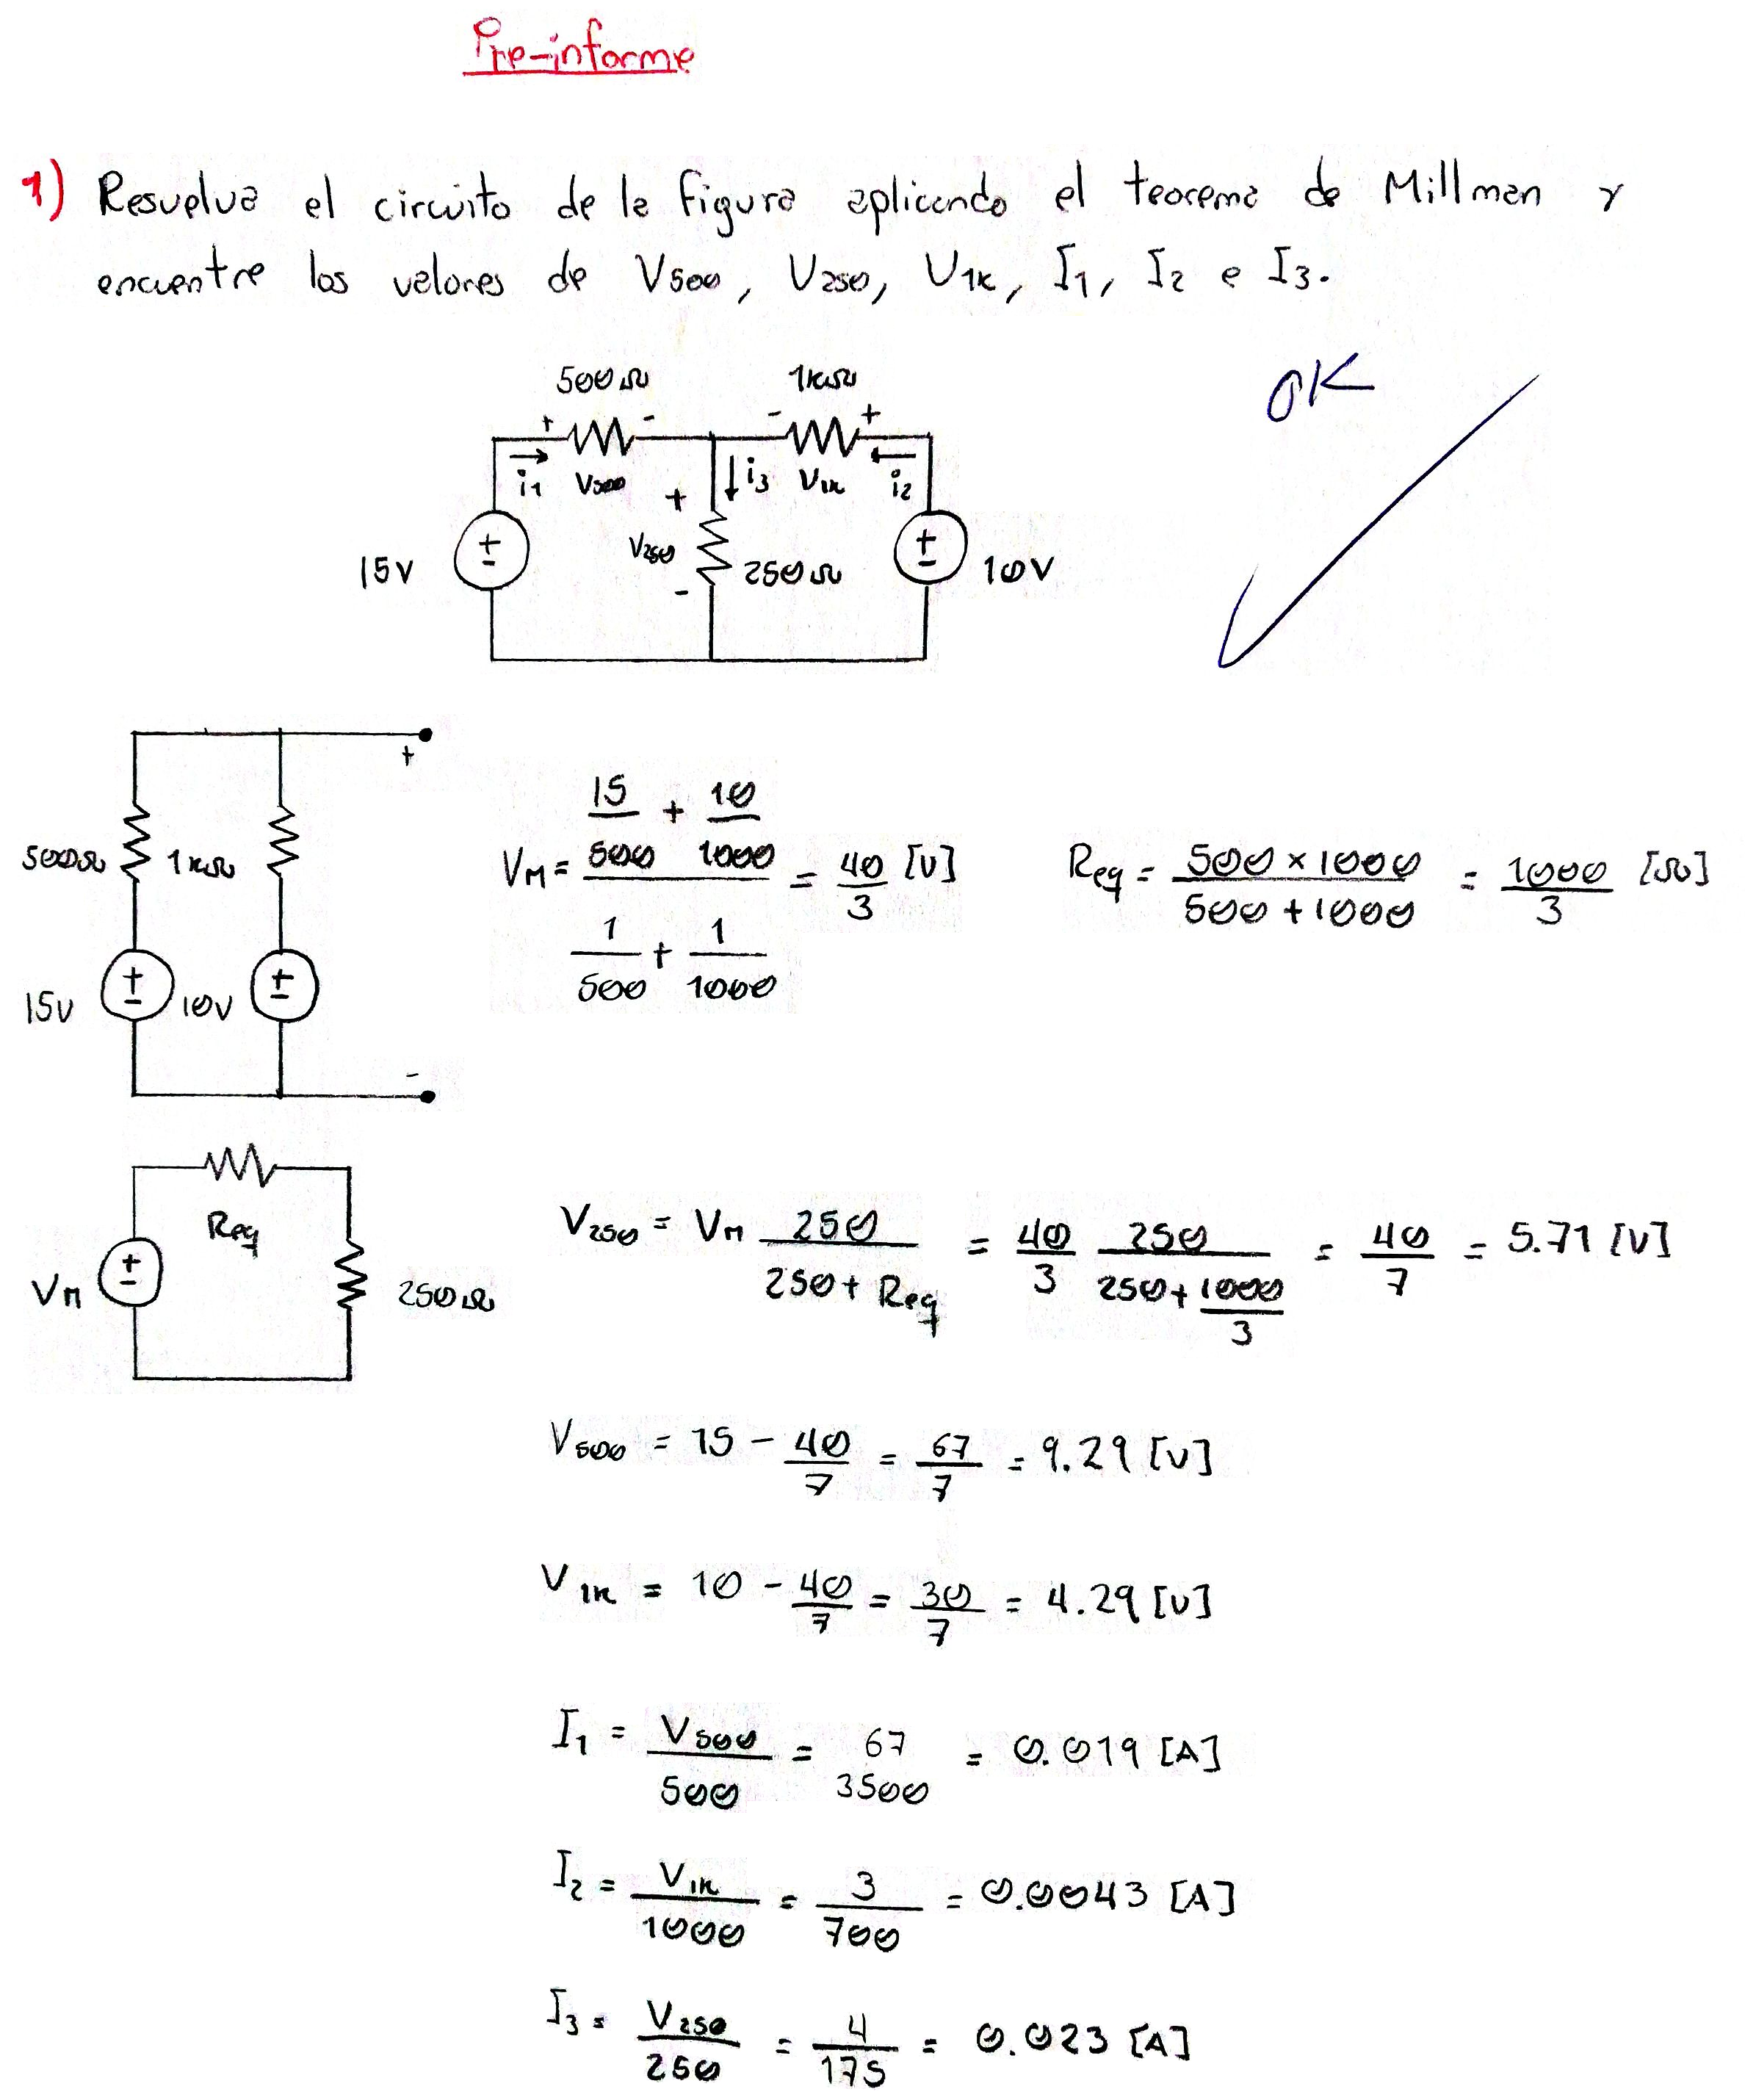 Pre-informe
1) Resuelva el circuito de la figura aplicando el teorema de Millman y
encuentre los valores de V500, V250, V1K, I1, I2 e I3.
OK
500Ω 1KΩ
+ - - +
i1 V500 + i3 V1K i2
15V + - V250 250Ω + - 10V
-
+
500Ω 1KΩ
15V + - 10V + -
-
VM = (15/500 + 10/1000) / (1/500 + 1/1000) = 40/3 [V]
Req = (500 × 1000)/(500 + 1000) = 1000/3 [Ω]
Req
VM + - 250Ω
V250 = VM 250/(250 + Req) = 40/3 250/(250 + 1000/3) = 40/7 = 5.71 [V]
V500 = 15 - 40/7 = 67/7 = 9.29 [V]
V1K = 10 - 40/7 = 30/7 = 4.29 [V]
I1 = V500/500 = 67 3500 = 0.019 [A]
I2 = V1K/1000 = 3/700 = 0.0043 [A]
I3 = V250/250 = 4/175 = 0.023 [A]